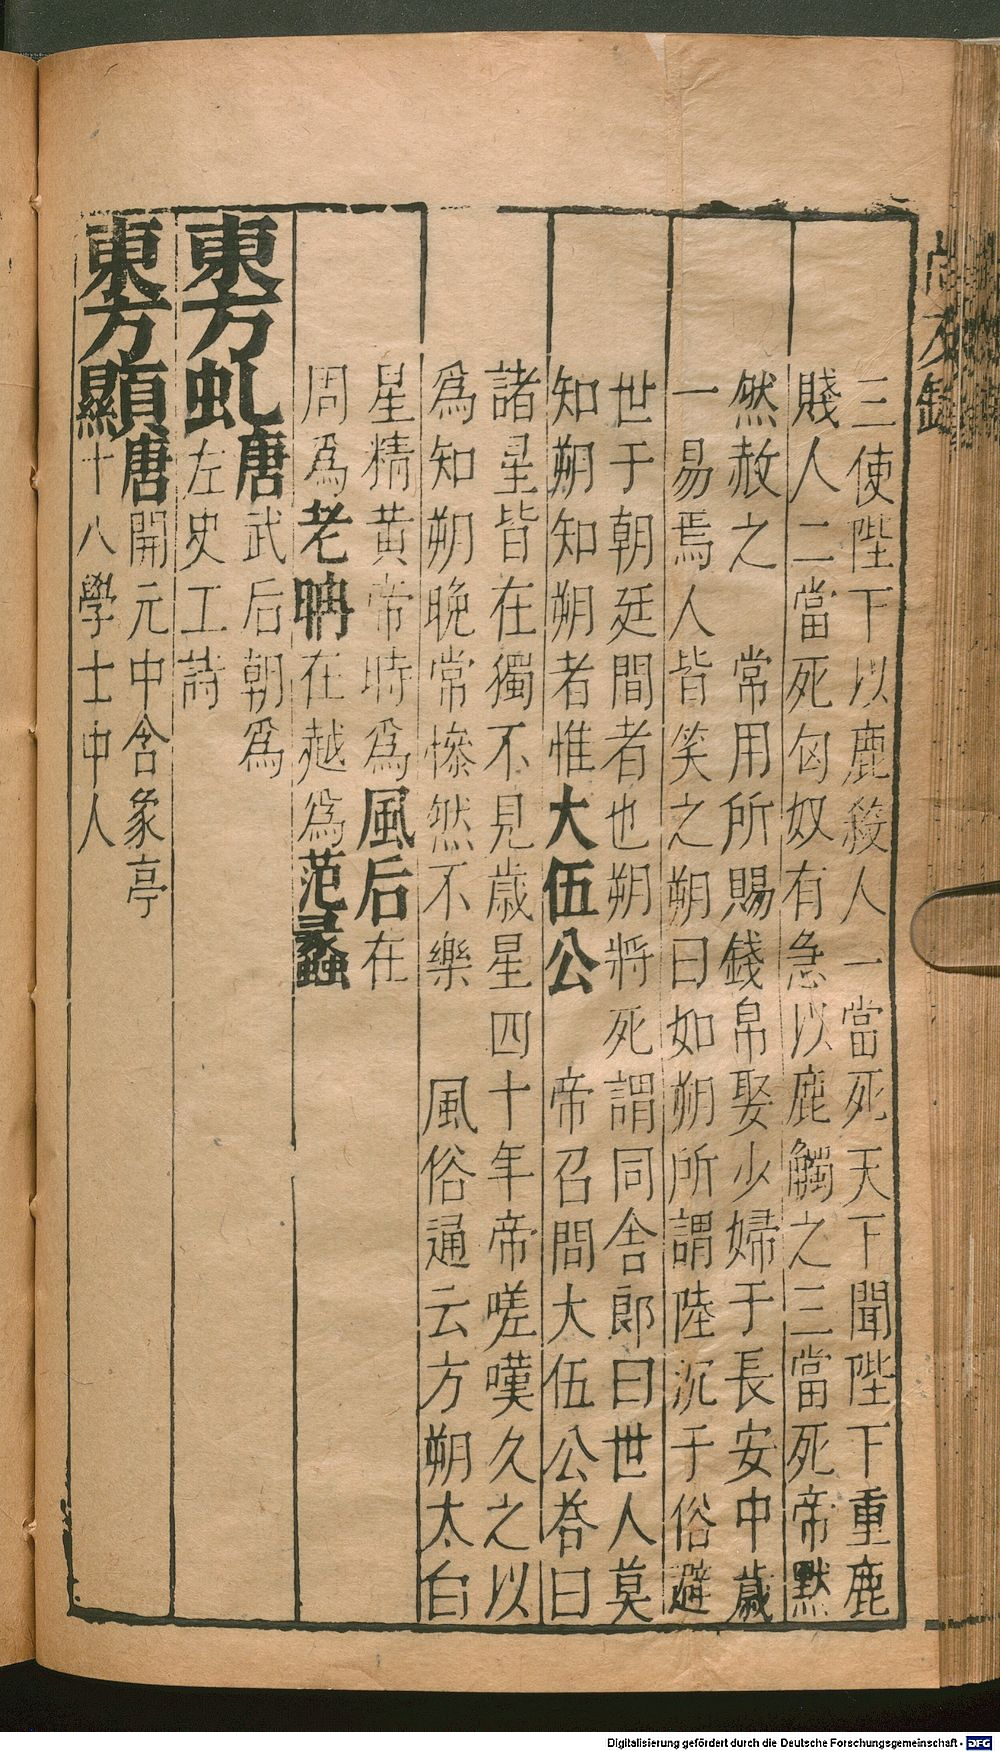 三使陛下以鹿殺人一當死天下聞陛下重鹿
賤人二當死匈奴有急以鹿觸之三當死帝默
然赦之　常用所賜錢帛娶少婦于長安中歲
一易焉人皆笑之朔曰如朔所謂陸沉于俗避
世于朝廷間者也朔將死謂同舍郎曰世人莫
知朔知朔者惟大伍公　帝召問大伍公荅曰
諸星皆在獨不見歲星四十年帝嗟嘆久之以
為知朔晚常慘然不樂　風俗通云方朔太白
星精黃帝時為風后在
周為老聃在越為范蠡
東方虬唐武后朝為
左史工詩
東方顯唐開元中含象亭
十八學士中人
Digitalisierung gefördert durch die Deutsche Forschungsgemeinschaft - DFG